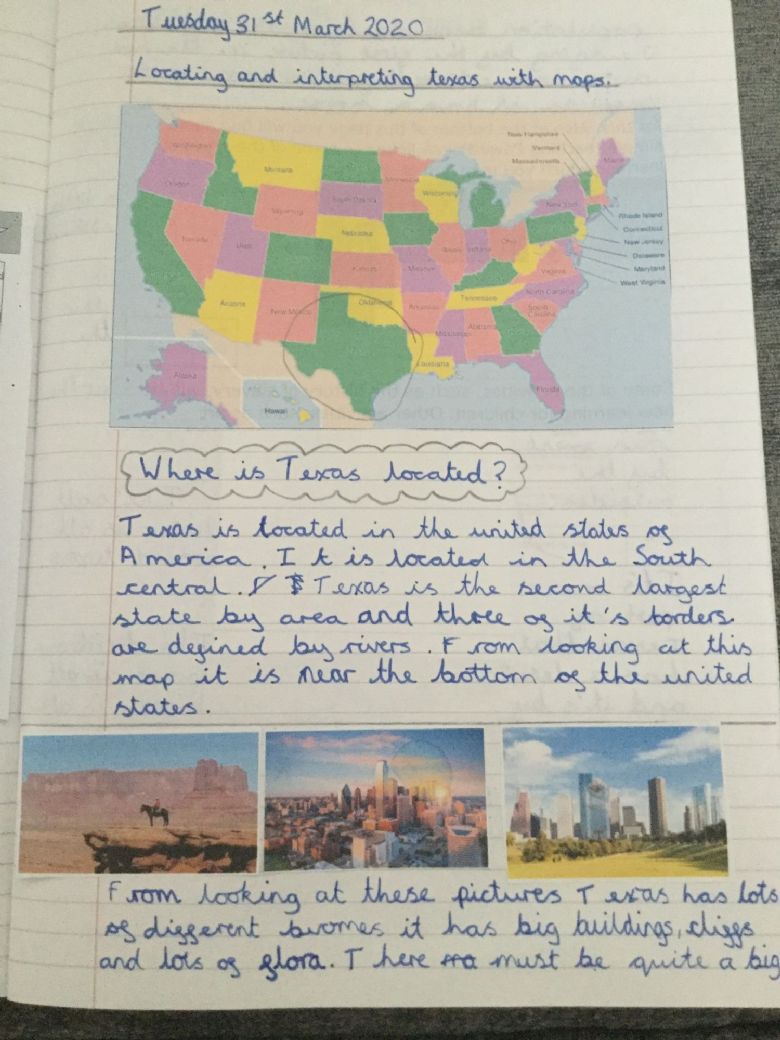 Tuesday 31st March 2020
Locating and interpreting texas with maps.
New Hampshire
Vermont
Massachusetts
Washington
Montana
Maine
Oregon
Minnesota
Wisconsin
South Dakota
New York
Wyoming
Rhode Island
Connecticut
Nebraska
New Jersey
Nevada
Utah
Illinois
Indiana
Ohio
Delaware
Maryland
Kansas
Missouri
Virginia
West Virginia
North Carolina
Arizona
New Mexico
Oklahoma
Arkansas
Tennessee
South Carolina
Mississippi
Alabama
Louisiana
Alaska
Hawaii
Florida
Where is Texas located?
Texas is located in the united states of
America. It is located in the South
central. Texas is the second largest
state by area and three of it's borders
are defined by rivers. From looking at this
map it is near the bottom of the united
states.
From looking at these pictures Texas has lots
of different biomes it has big buildings, cliffs
and lots of flora. There must be quite a big